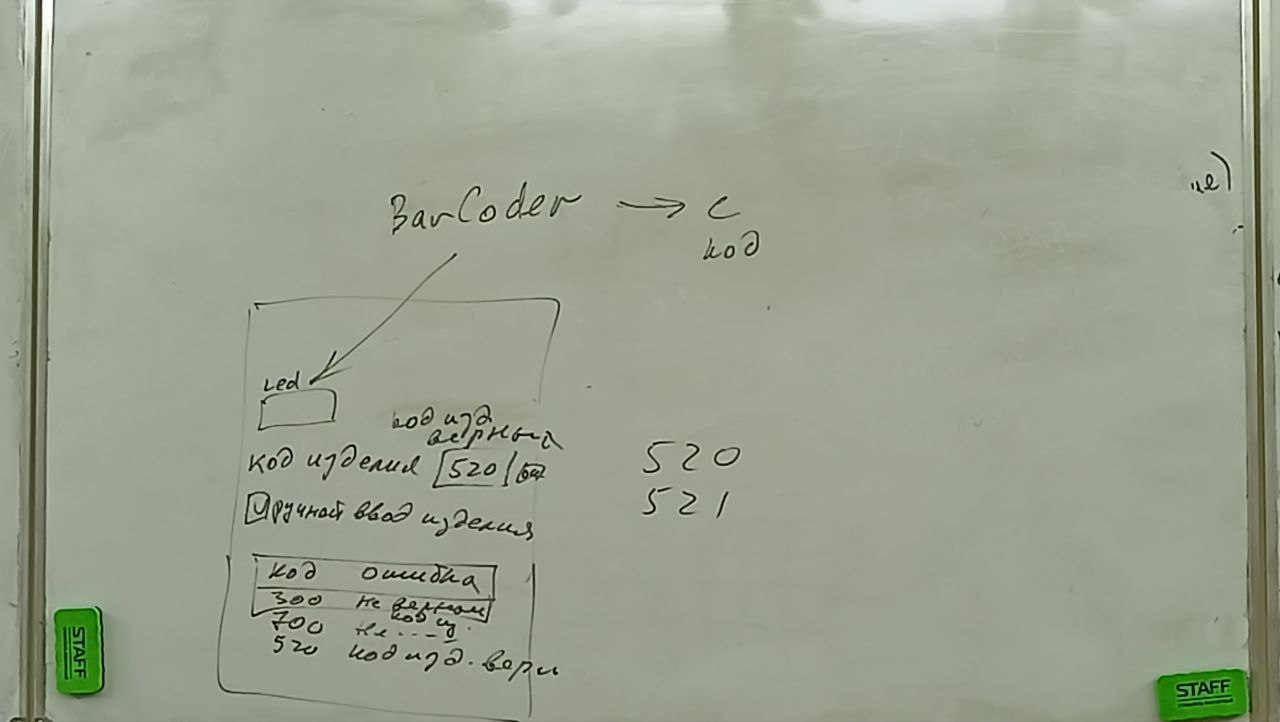 BarCoder → C
код
Led
код изд
верный
код изделия 520
ручной ввод изделия
520
521
код ошибка
300 не верный
код из.
700 не ----
520 код изд. верн
STAFF
STAFF